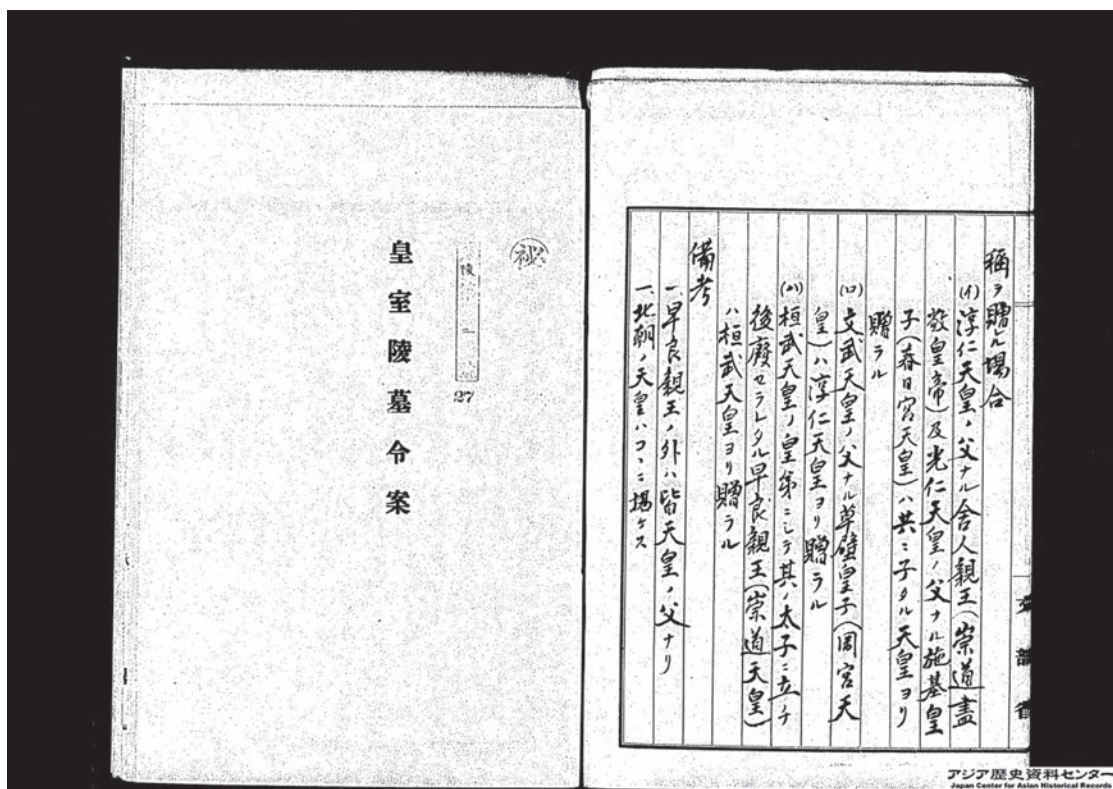 稱ヲ贈ル場合
(イ)淳仁天皇ノ父ナル舎人親王(崇道盡
敬皇帝)及光仁天皇ノ父ナル施基皇
子(春日宮天皇)ハ共ニ子タル天皇ヨリ
贈ラル
(ロ)文武天皇ノ父ナル草壁皇子(岡宮天
皇)ハ淳仁天皇ヨリ贈ラル
(ハ)桓武天皇ノ皇弟ニシテ其ノ太子ニ立チ
後廢セラレタル早良親王(崇道天皇)
ハ桓武天皇ヨリ贈ラル
備考
一、早良親王ノ外ハ皆天皇ノ父ナリ
一、北朝ノ天皇ハコヽニ揚ケス
文部省
秘
陵
27
皇室陵墓令案
アジア歴史資料センター
Japan Center for Asian Historical Records